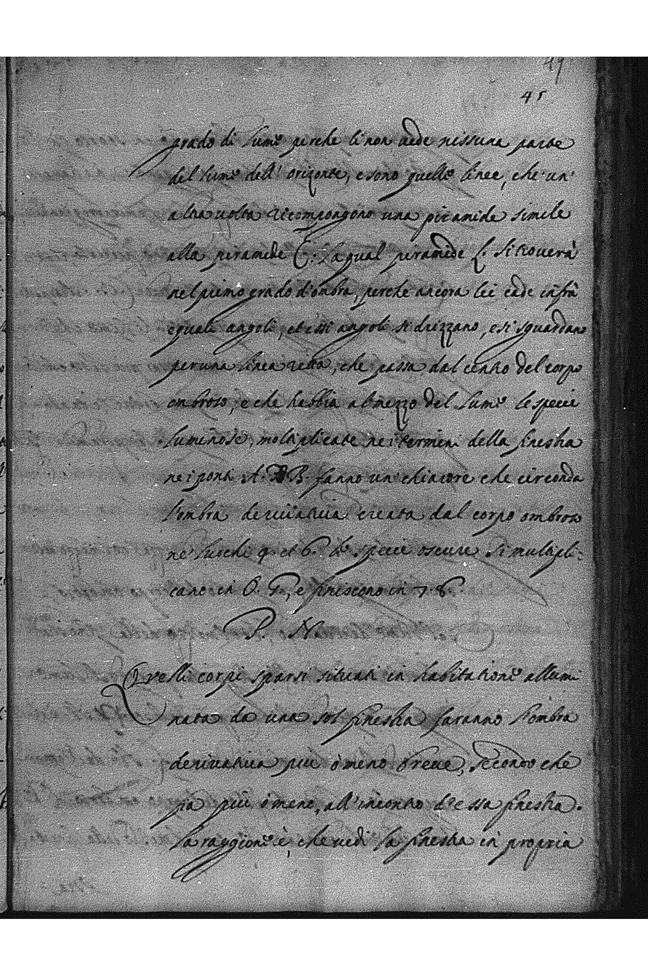 49
45
grado di lume perche li non uede nissuna parte
del lume dell' orizonte, e sono quelle linee, che un'
altra uolta ricompongono una piramide simile
alla piramide C. la qual piramide L. si trouerà
nel primo grado d'ombra, perche ancora lei cade infrà
equali angoli, et essi angoli si drizzano, e si sguardano
per una linea retta, che passa dal centro del corpo
ombroso, e che habbia al mezzo del lume le specie
luminose, moltiplicate ne i termini della finestra
ne i ponti A. B. fanno un chiarore che circonda
l'ombra deriuatiua creata dal corpo ombroso
ne luochi 4. et 6. le specie oscure si multipli-
cano in O. G., e finiscono in 7. 8.
P. N.
Quelli corpi sparsi situati in habitatione allumi
nata da una sol finestra faranno l'ombra
deriuatiua più ò meno breue, secondo che
sia più ò meno, all' incontro d'essa finestra.
la raggione è, che uedi la finestra in propria